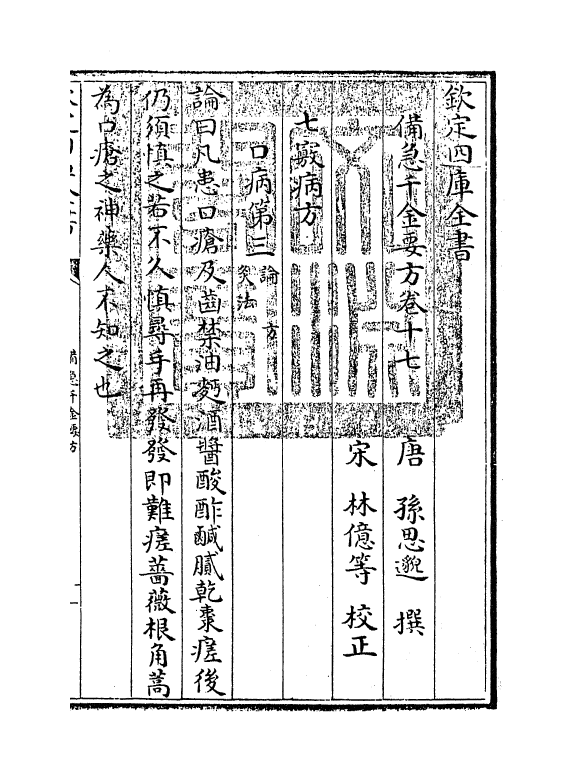 欽定四庫全書
備急千金要方卷十七
唐 孫思邈 撰
宋 林億等 校正
七竅病方
口病第三 論 方 灸法
論曰凡患口瘡及齒禁油麪酒醬酸酢鹹膩乾棗瘥後
仍須慎之若不久慎尋手再發發即難瘥薔薇根角蒿
為口瘡之神藥人不知之也
備急千金要方